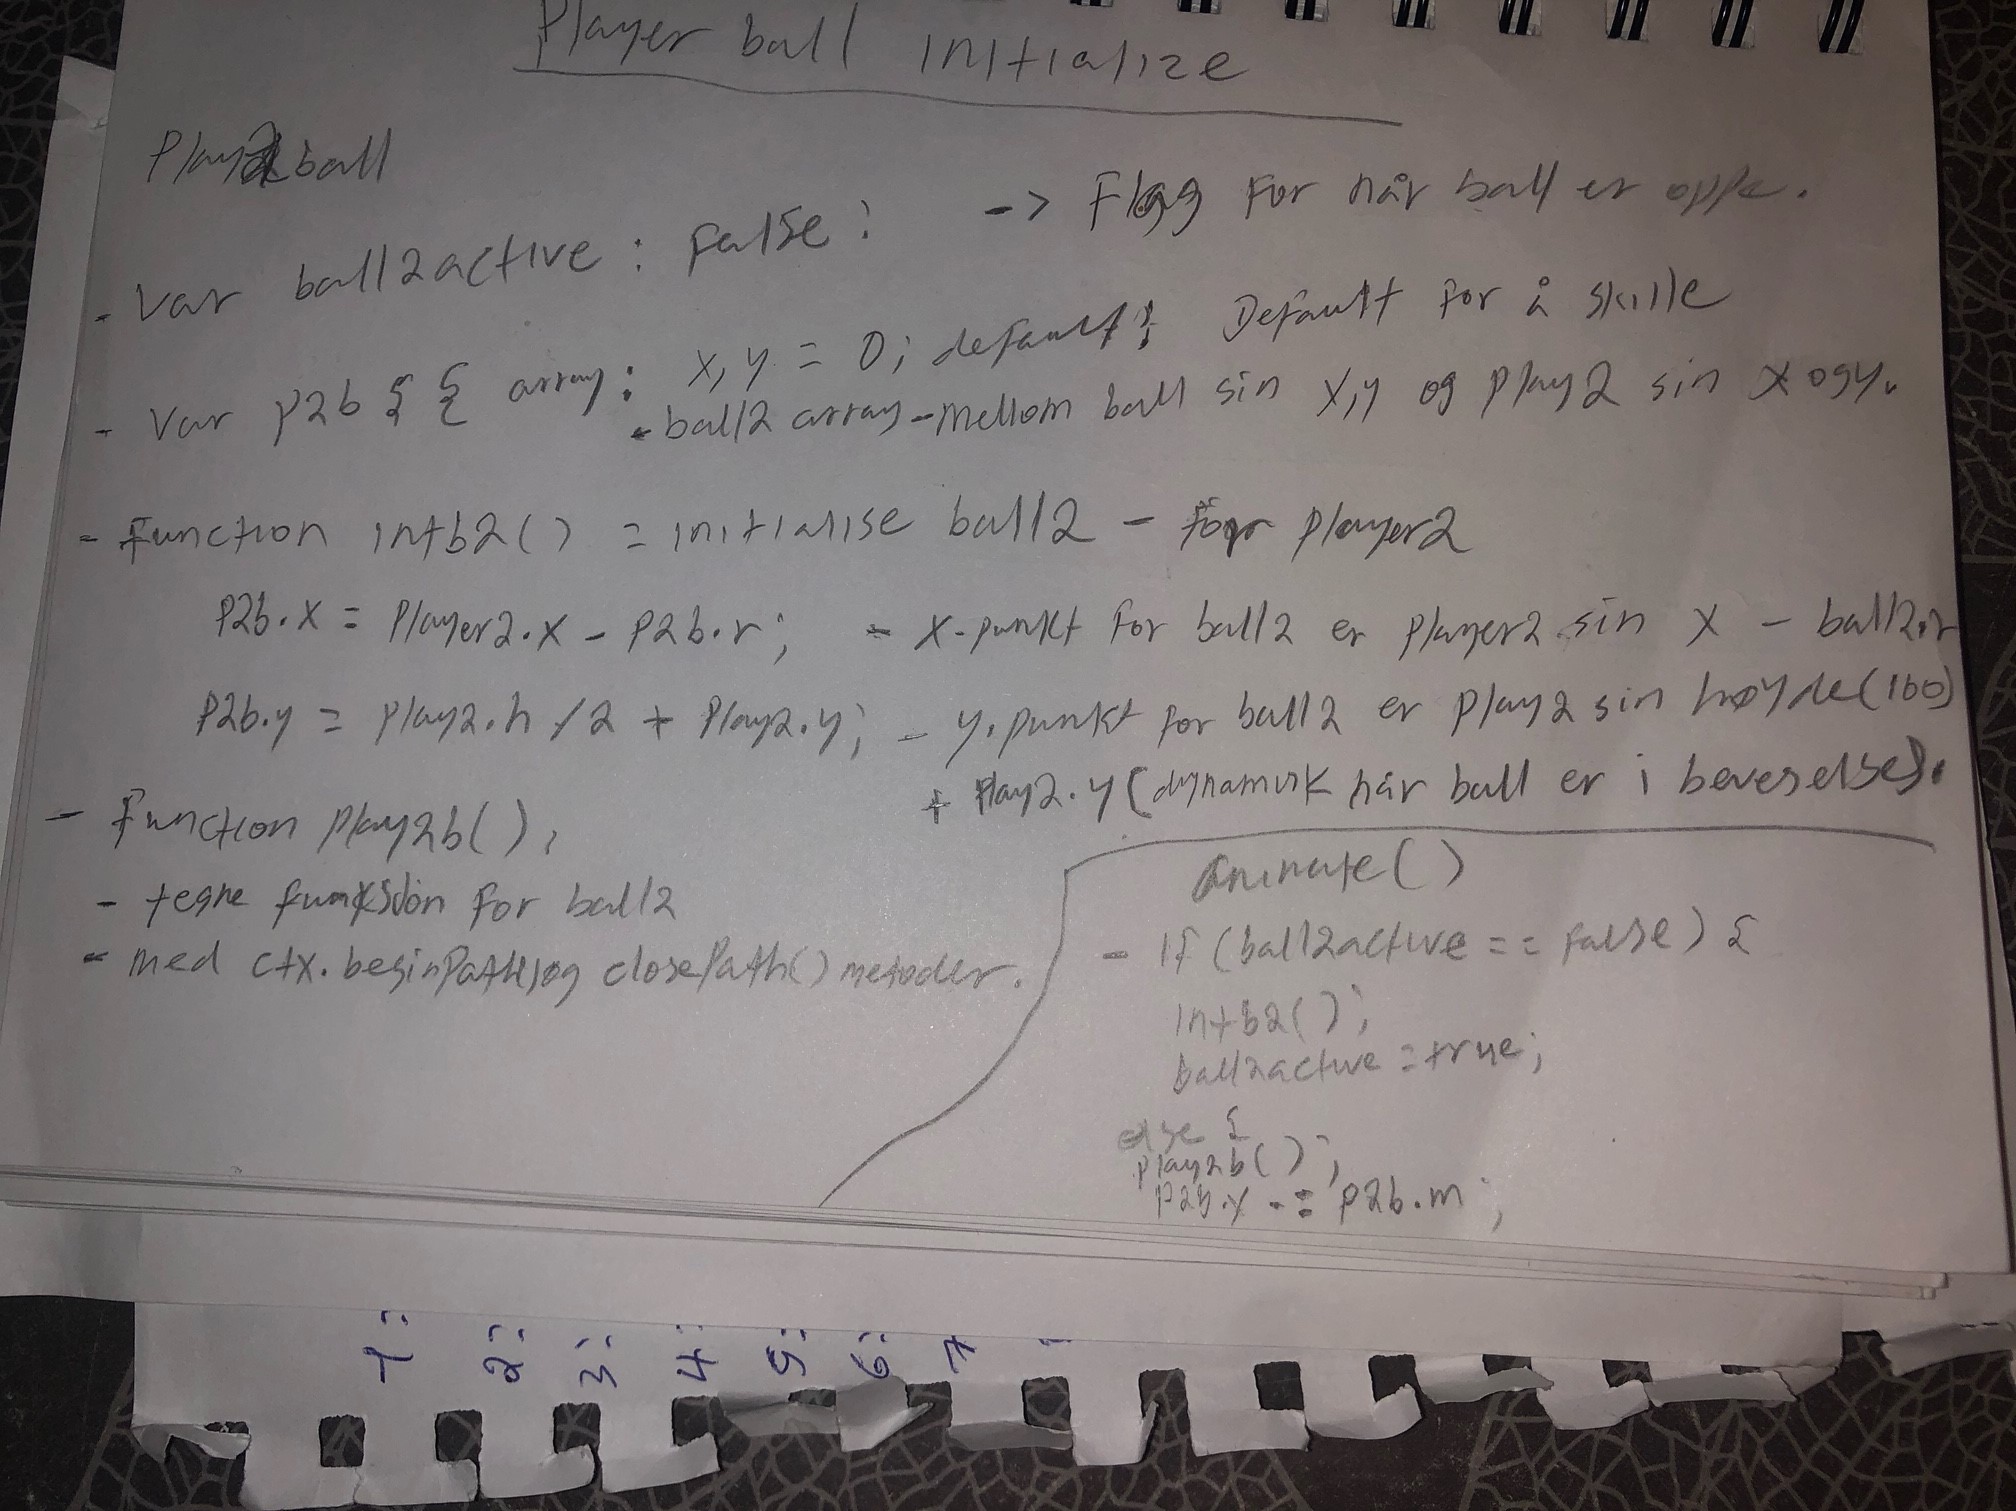 Player ball initialize
Play2ball
- Var ball2active : false; -> Flagg for når ball er oppe.
- Var p2b { { array: x, y = 0; default; Default for å skille
- ball2 array - mellom ball sin x,y og play2 sin x og y.
- Function intb2() = initialise ball2 - for player2
P2b.x = Player2.x - P2b.r; - x-punkt for ball2 er player2 sin x - ball2.r
P2b.y = play2.h /2 + Play2.y; - y.punkt for ball2 er play2 sin høyde(100)
+ Play2.y (dynamisk når ball er i bevegelse).
- Function play2b();
- tegne funksjon for ball2
- med ctx.beginPath() og closePath() metoder.
animate()
- If (ball2active == false) {
intb2();
ball2active = true;
else {
play2b();
P2b.x -= p2b.m;
1:
2:
3:
4:
5:
6:
7